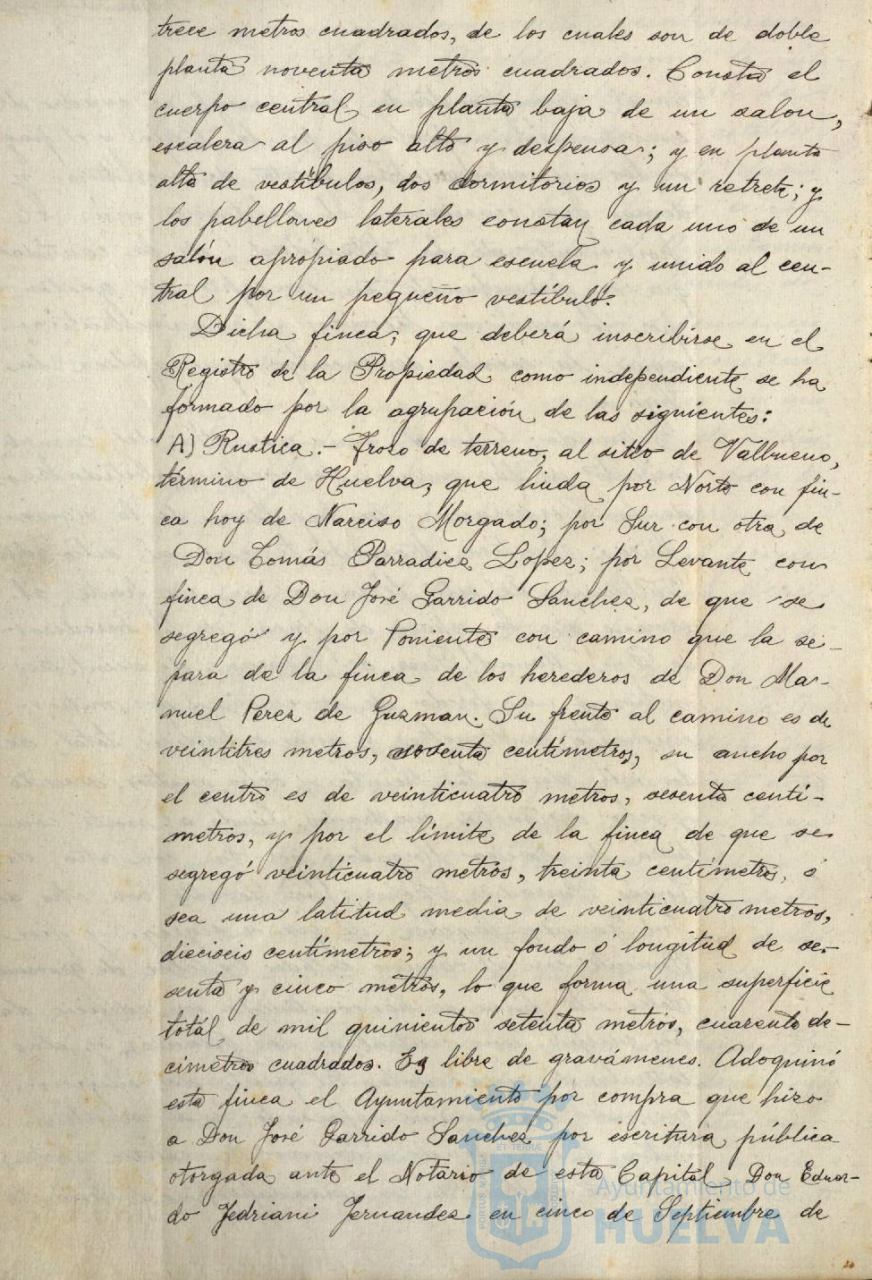 trece metros cuadrados, de los cuales son de doble
planta noventa metros cuadrados. Consta el
cuerpo central en planta baja de un salon,
escalera al piso alto y despensa; y en planta
alta de vestíbulos, dos dormitorios y un retrete; y
los pabellones laterales constan cada uno de un
salón apropiado para escuela y unido al cen-
tral por un pequeño vestíbulo.
Dicha finca, que deberá inscribirse en el
Registro de la Propiedad como independiente se ha
formado por la agrupación de las siguientes:
A) Rustica.- Trozo de terreno, al sitio de Valbueno,
término de Huelva, que linda por Norte con fin-
ca hoy de Narciso Morgado; por Sur con otra de
Don Tomás Parradiez Lopez; por Levante con
finca de Don José Garrido Sanchez, de que se
segregó y por Poniente con camino que la se-
para de la finca de los herederos de Don Ma-
nuel Perez de Guzman. Su frente al camino es de
veintitres metros, sesenta centímetros, su ancho por
el centro es de veinticuatro metros, sesenta centí-
metros, y por el límite de la finca de que se
segregó veinticuatro metros, treinta centimetros, ó
sea una latitud media de veinticuatro metros,
dieciseis centímetros; y un fondo ó longitud de se-
senta y cinco metros, lo que forma una superficie
totál de mil quinientos setenta metros, cuarenta de-
cimetros cuadrados. Es libre de gravámenes. Adoquinó
esta finca el Ayuntamiento por compra que hizo
a Don José Garrido Sanchez por escritura pública
otorgada ante el Notario de esta Capital Don Eduar-
do Fedriani Fernandez en cinco de Septiembre de
Ayuntamiento de
HUELVA